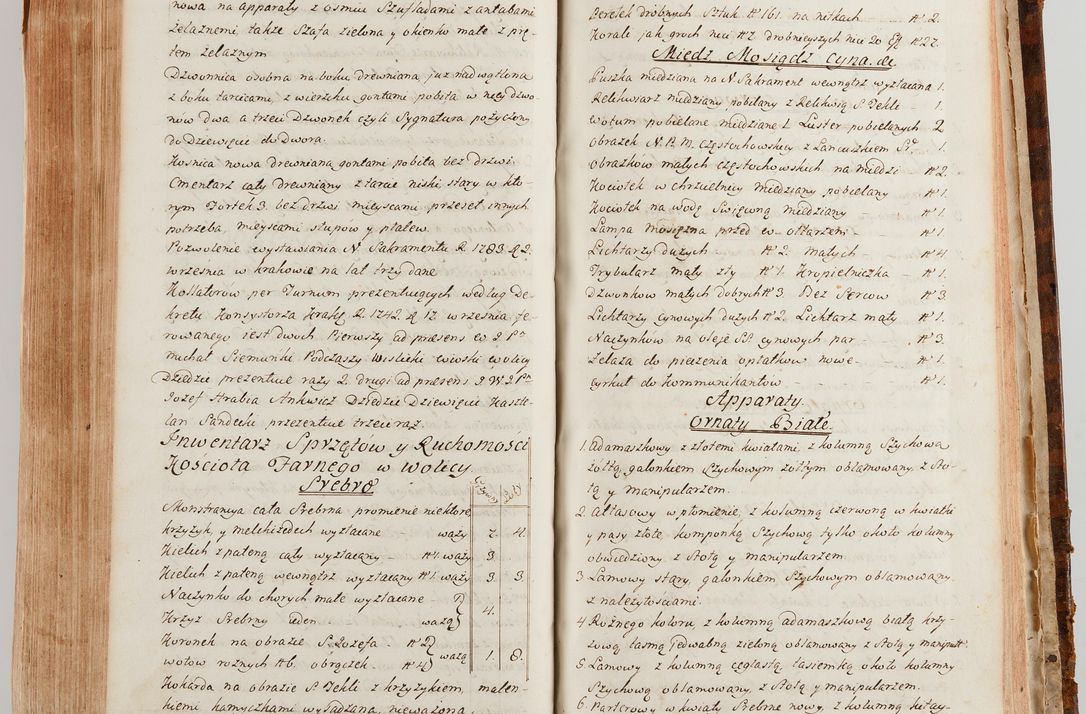 nowa na apparaty z osmiu Szufladami z antabami
żelaznemi, także Szafa zielona y okienko małe z prę-
tem żelaznym
Dzwonnica osobna na boku drewniana już nadwątlona
z boku tarcicami, z wierzchu gontami pobita w niey dzwo-
nów dwa a trzeci Dzwonek czyli Sygnatura pożyczon.
do Dziewięcic do Dworu.
Kosnica nowa drewniana gontami pobita bez drzwi.
Cmentarz cały drewniany z tarcic niski stary w któ-
rym Fortek 3. bez drzwi mieyscami przeseł innych
potrzeba, mieyscami słupów y płatew.
Pozwolenie wystawiania N. Sakramentu R. 1783. d. 2.
września w krakowie na lat trzy dane
Kollatorów per Turnum prezentuiących według De-
kretu Konsystorza Krakł R. 1742. d. 17. września fe-
rowanego iest dwoch Pierwszy ad præsens W J Pn
Michał Siemuński Podczaszy Wislicki wioski wolicy
Dziedzic prezentuie razy 2. drugi ad præsens J W J Pn
Jozef Hrabia Ankwicz Dziedzic Dziewięcic Kaszte-
lan Sandecki prezentuie trzeci raz.
Inwentarz Sprzętów y Ruchomosci
Kościoła Farnego w wolicy.
Srebro
Grzywn Łoty
Monstrancya cała Srebrna promienie niektóre
krzyżyk y melchizedech wyzłacane waży 7. 4.
Kielich z pateną cały wyzłacany N 1. waży 3.
Kielich z pateną wewnątrz wyzłacany N 1. waży 3. 3.
Naczynko do chorych małe wyzłacane
Krzyż Srebrny ieden ważą 4.
Koronek na obrazie S. Jozefa. N 2
wotow roznych N 6. obrączek. N 4 ważą 1. 8.
Kokarda na obrazie S. Tekli z krzyżykiem, maleń-
kiemi kamyczkami wysadzana, nieważona
Perełek drobnych Sztuk N 161. na nitkach N 2.
Korali jak groch nici N 7 drobnieyszych nici 20 N 27.
Miedz Mosiądz Cyna. &c
Puszka miedziana na N. Sakrament wewnątrz wyzłacana 1.
Relikwiarz miedziany pobielany z Relikwią S. Tekli - 1.
wotum pobielane miedziane 1 Luster pobielanych 2
Obrazek N. P. M. Częstochowskiey z Łancuszkiem Sr. 1.
Obrazków małych częstochowskich na miedzi - N 2.
Kociołek w chrzcielnicy miedziany pobielany N 1.
Kociołek na wodę Swięconą miedziany N 1.
Lampa mosiężna przed w. ołtarzem - N 1.
Lichtarzy dużych N 2. małych N 4.
Trybularz mały zły N 1. Kropielniczka - N 1.
Dzwonkow małych dobrych N 3. Bez Serców N 3.
Lichtarzy cynowych dużych N 2. Lichtarz mały N 1.
Naczynków na oleje SS. cynowych par - N 3.
Żelaza do pieczenia opłatkow nowe - N 1.
Cyrkuł do kommunikantów N 1.
Apparaty.
Ornaty Białe.
1. Adamaszkowy z złotemi kwiatami, z kolumną Szychową
żółtą, galonkiem Szychowym żółtym oblamowany, z Sto-
łą y manipularzem.
2. Atłasowy w płomienie, z kolumną czerwoną w kwiatki
y pasy złote, komponką Szychową tylko około kolumny
obwiedziony, z Stołą y manipularzem.
3 Lamowy stary, galonkiem Szychowym oblamowany.
z należytościami.
4 Rożnego koloru, z kolumną adamaszkową białą krzy-
żową tasmą jedwabną zieloną oblamowany z Stołą y manipulr
5. Lamowy z kolumną ceglastą tasiemką około kolumny
Szychową oblamowany, z Stołą y manipularzem.
6. Parterowy w kwiaty Srebrne nowy, z kolumną kitay-